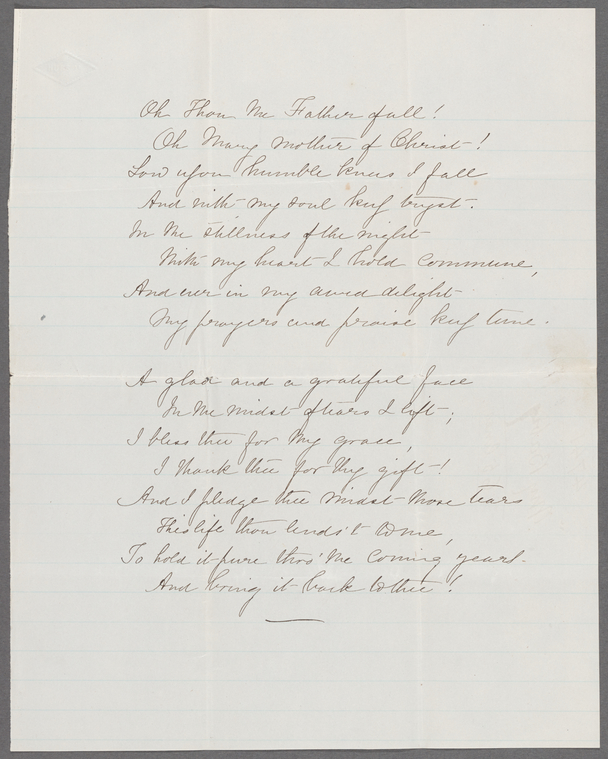 Oh Thou the Father of all!
Oh Mary mother of Christ!
Low upon humble knees I fall
And with my soul keep tryst.
In the stillness of the night
With my heart I hold commune,
And ever in my awed delight
My prayers and praise keep tune.
A glad and a grateful face
In the midst of tears I lift;
I bless thee for thy grace,
I thank thee for thy gift!
And I pledge thee midst those tears
This life thou lends't to me,
To hold it pure thro' the coming years.
And bring it back to thee!